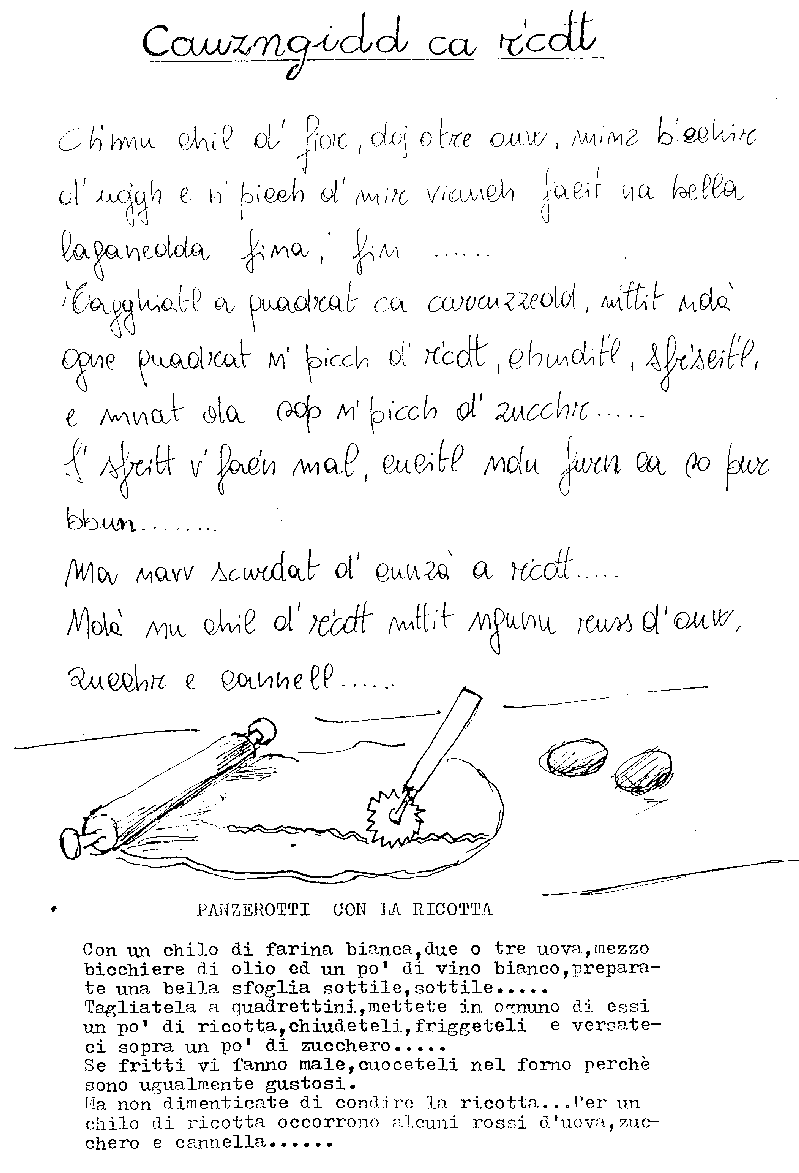 Cauzngidd ca r'cott
C'n nu chil d' fior, duj o tre ouv, minz b'cchir
d' uggh e n' picch d' mir vianch facit na bella
laganedda fina, fin ......
Tagghiatl a quadrat ca carruzzedd, mttit ndà
ogne quadrat n' picch d' r'cott, chiudit'l, sfr'scit'l,
e mnat da sop n' picch d' zucchir.....
S' sfritt v' facn mal, cucitl ndu furn ca so pur
bbun........
Ma navv scurdat d' cunzà a r'cott.....
Ndà nu chil d' r'cott mttit ngunu russ d' ouv,
zucchir e cannell......
PANZEROTTI CON LA RICOTTA
Con un chilo di farina bianca,due o tre uova,mezzo
bicchiere di olio ed un po' di vino bianco,prepara-
te una bella sfoglia sottile,sottile.....
Tagliatela a quadrettini,mettete in ognuno di essi
un po' di ricotta,chiudeteli,friggeteli e versate-
ci sopra un po' di zucchero.....
Se fritti vi fanno male,cuoceteli nel forno perchè
sono ugualmente gustosi.
Ma non dimenticate di condire la ricotta...Per un
chilo di ricotta occorrono alcuni rossi d'uova,zuc-
chero e cannella......